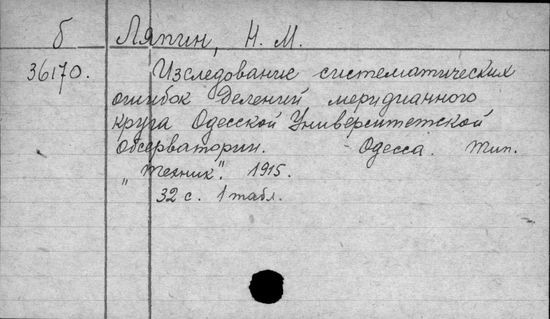 б Ляпин, Н. М.
36170. Изследование систематических
ошибок делений меридианного
круга Одесской Университетской
обсерватории. Одесса. Тип.
„Техник". 1915.
32 с. 1 табл.